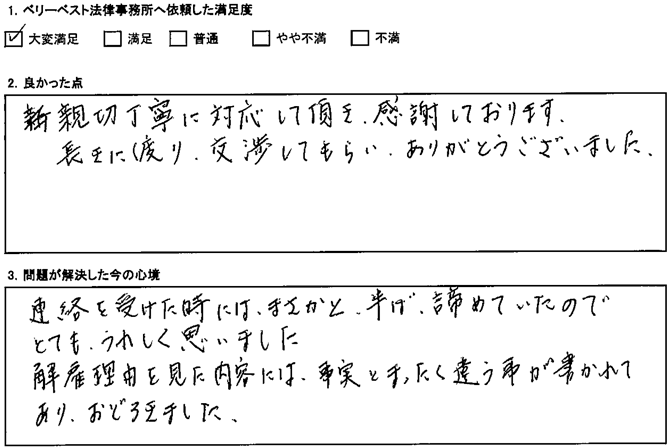 1. ベリーベスト法律事務所へ依頼した満足度
☑ 大変満足 □ 満足 □ 普通 □ やや不満 □ 不満
2. 良かった点
親切丁寧に対応して頂き、感謝しております。
長きに渡り、交渉してもらい、ありがとうございました。
3. 問題が解決した今の心境
連絡を受けた時には、まさかと、半ば、諦めていたので
とても、うれしく思いました
解雇理由を見た内容には、事実とまったく違う事が書かれて
あり、おどろきました、